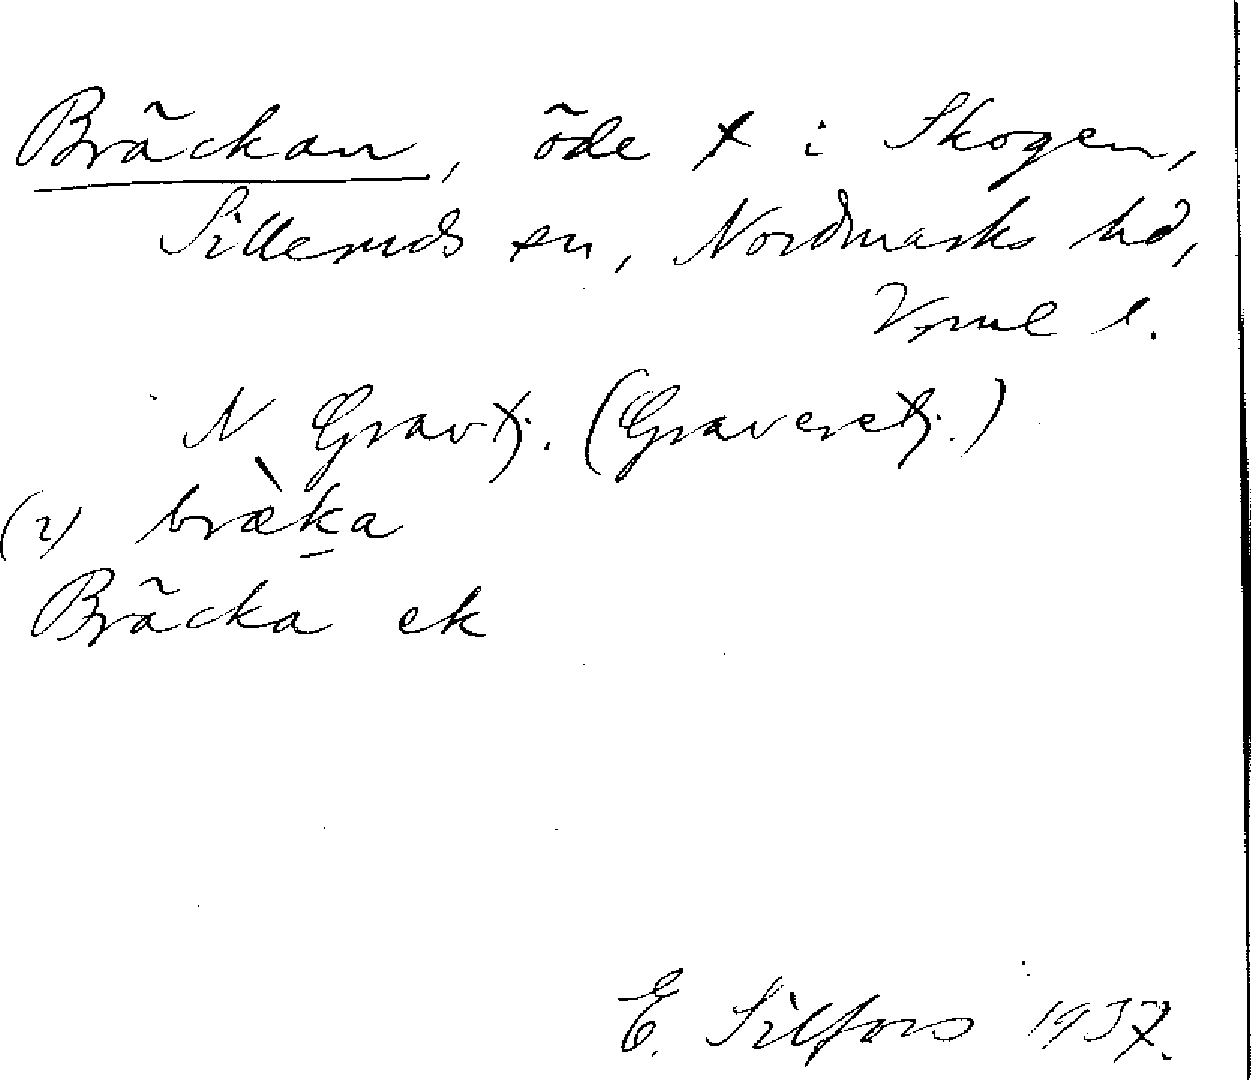 Bräckan, öde x i Skogen,
Silleruds sn, Nordmarks hd,
Vrml l.
N Gravtj. (Graveretj.)
(2) bræ̀ka
Bräcka ek
E. Silfors 1937.